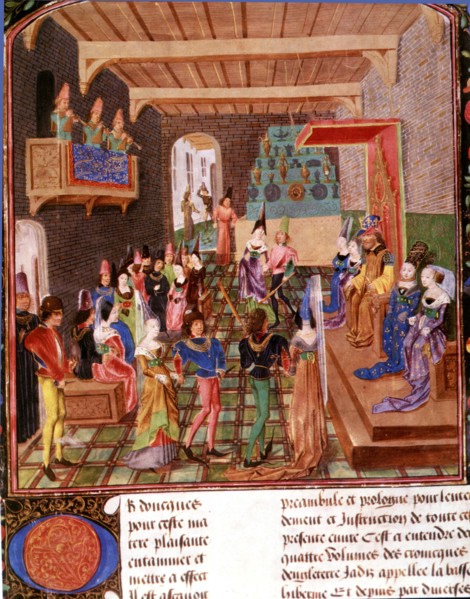 R doncques
pour ceste ma
tere plaisante
entammer et
mettre a effect
Il est assavoir
preambule et prologue pour lente
dement et Instruction de toute ce
presente euure Cest a entendre de
quattre Volumes des cronicques
dengleterre Jadiz appellee la basse
Et depuis par diuerses